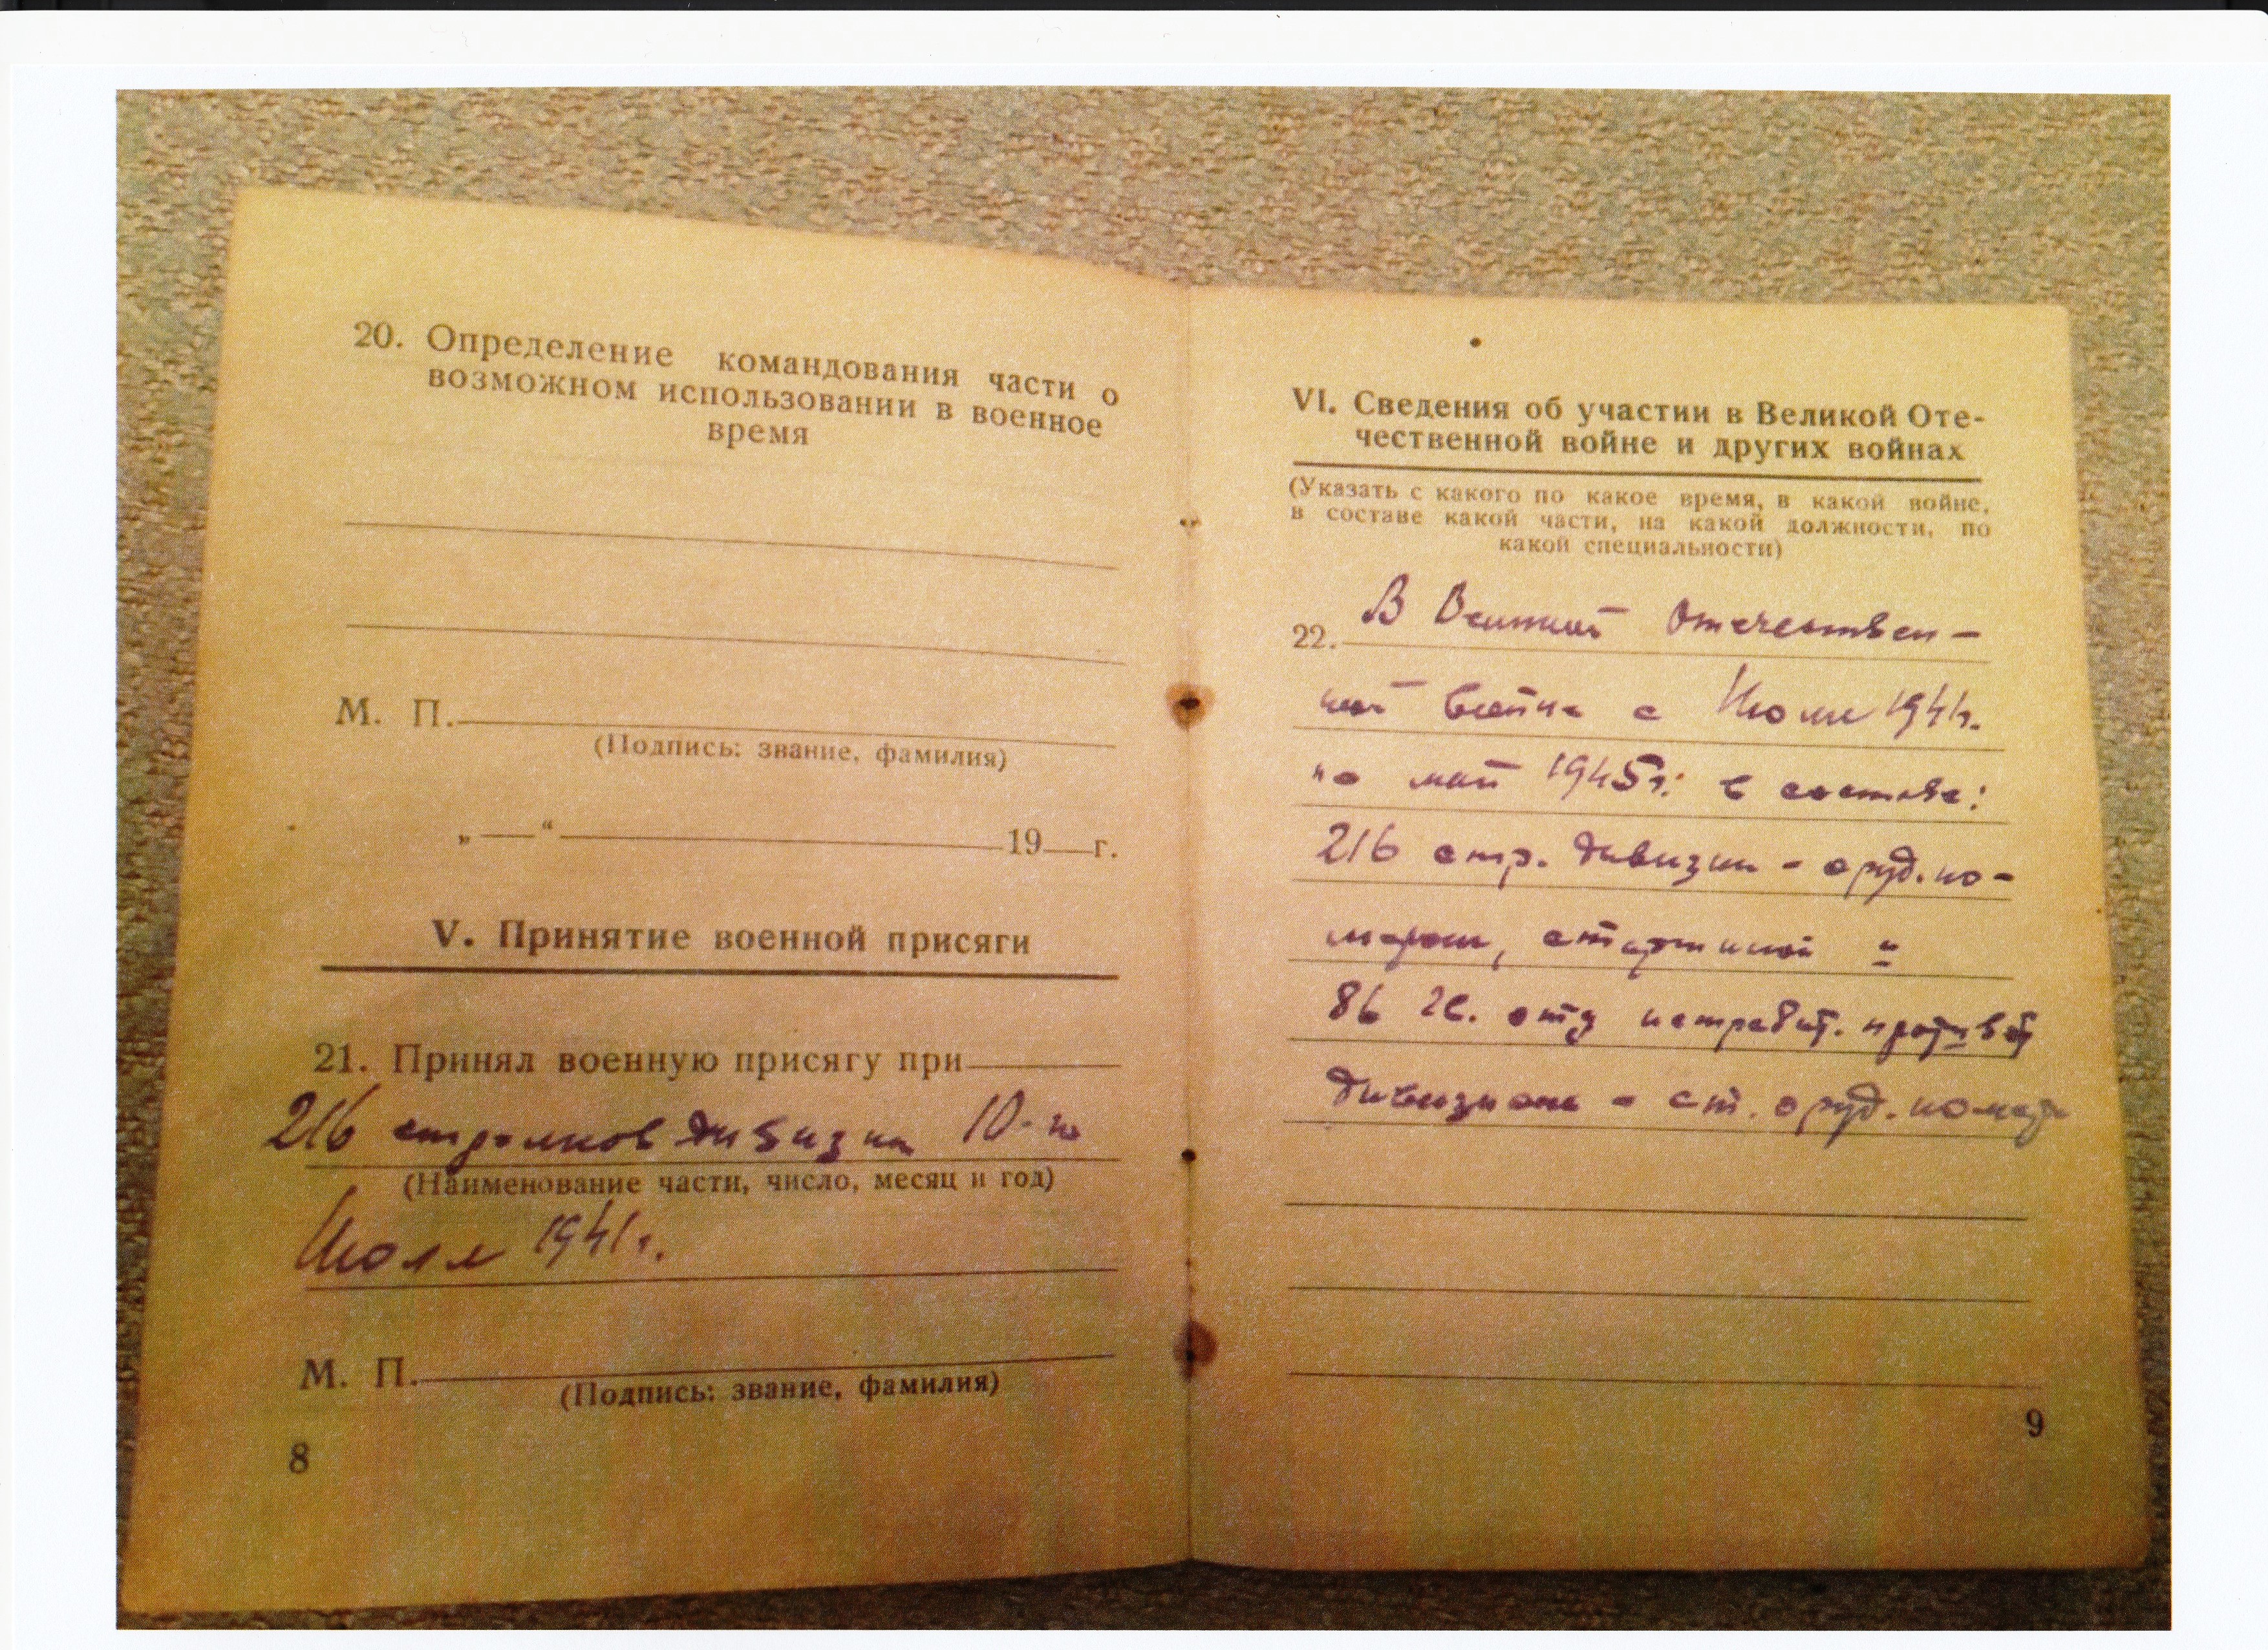 20. Определение командования части о
возможном использовании в военное
время
М. П.
(Подпись: звание, фамилия)
„ “ 19 г.
V. Принятие военной присяги
21. Принял военную присягу при
216 стрелков дивизии 10-го
(Наименование части, число, месяц и год)
Июля 1941г.
М. П.
(Подпись: звание, фамилия)
8
VI. Сведения об участии в Великой Оте-
чественной войне и других войнах
(Указать с какого по какое время, в какой войне,
в составе какой части, на какой должности, по
какой специальности)
22. В Великой Отечествен-
ной войне с Июля 1941г.
по май 1945г: в составе:
216 стр. дивизии - оруд. но-
мером, старшиной
86 отд истребит. против
дивизиона - ст. оруд. номер
9